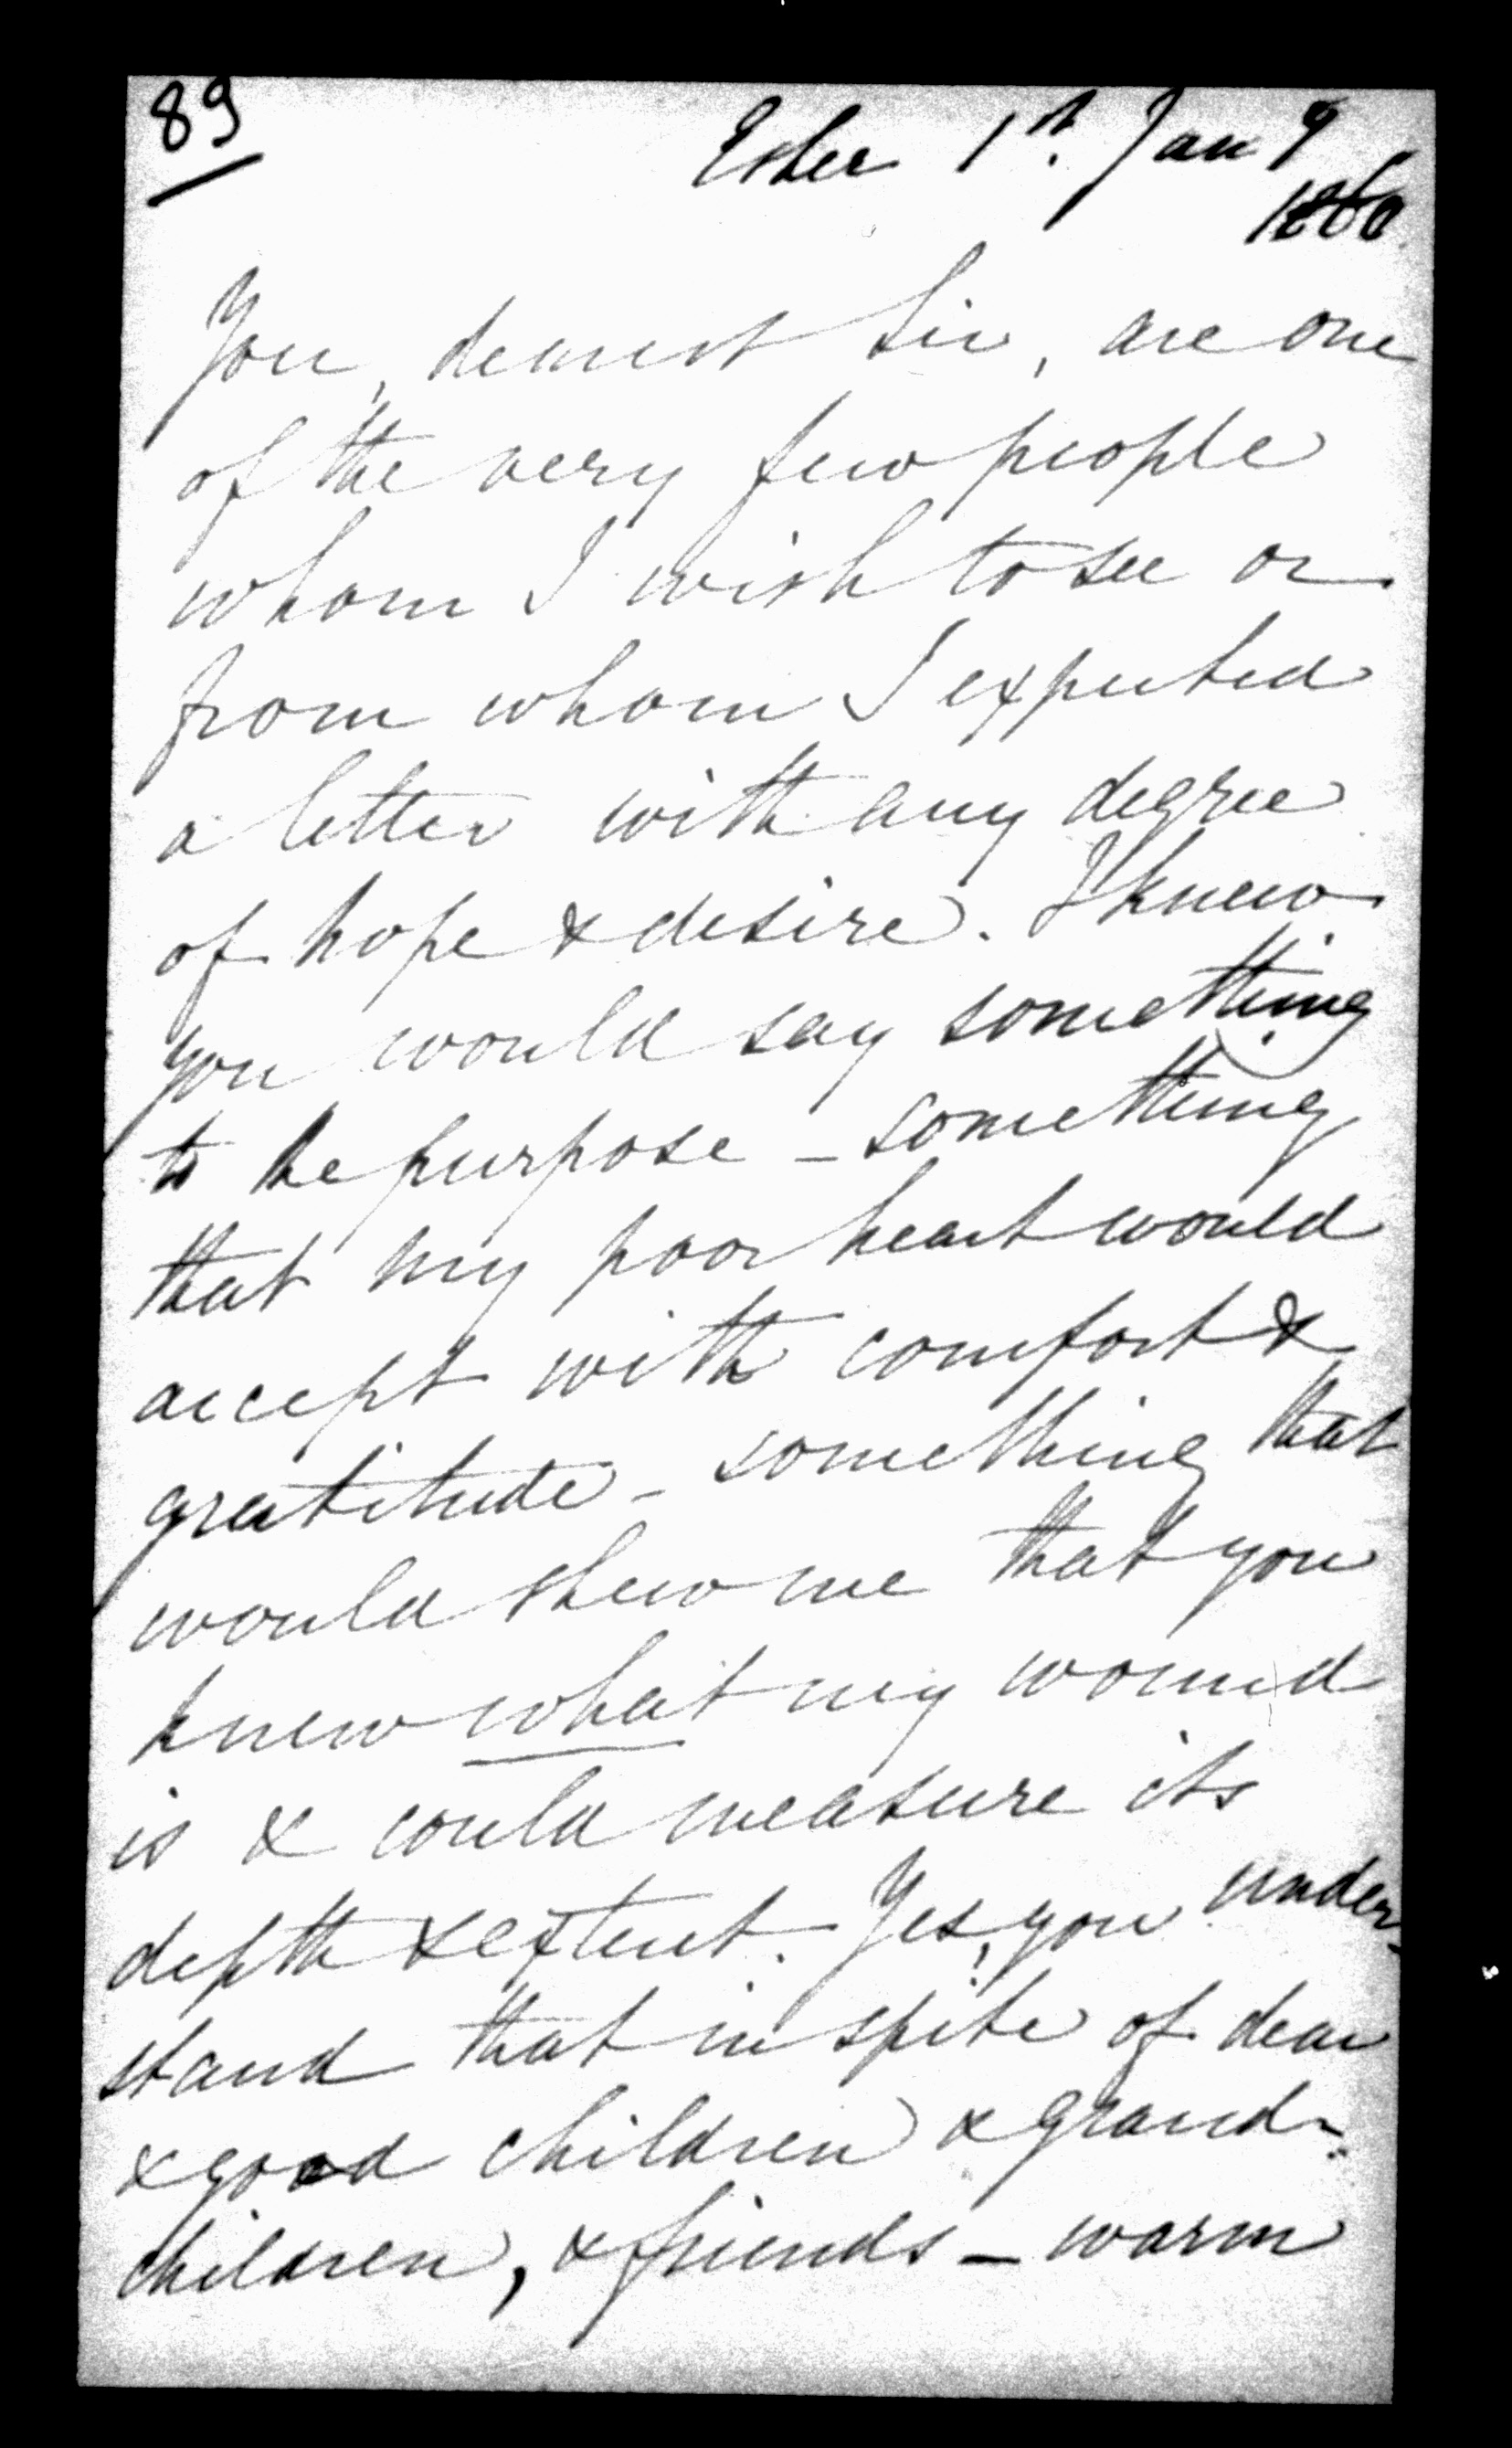 89
Esher 1st. Jany
1860
You, dearest Sir, are one
of the very few people
whom I wish to see or
from whom I expected
a letter with any degree
of hope & desire. I knew
you would say something
to the purpose - something
that my poor heart would
accept with comfort &
gratitude - something that
would shew me that you
knew what my wound
is & could measure its
depth & extent. Yes, you under-
stand that in spite of dear
& good children & grand-
children, & friends - warm